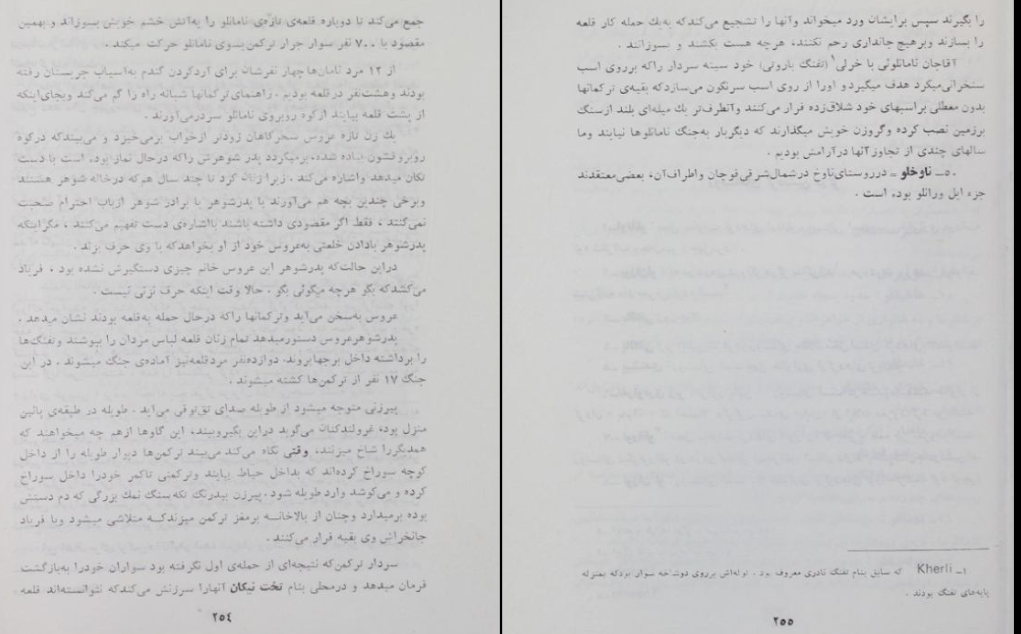 جمع می‌کند تا دوباره قلعه‌ی تازه‌ی نامانلو را به‌آتش خشم خویش بسوزاند و بهمین
مقصود با ۷۰۰ نفر سوار جرار ترکمن بسوی نامانلو حرکت میکند .
از ۱۲ مرد نامان‌ها چهار نفرشان برای آردکردن گندم به‌آسیاب چربستان رفته
بودند وهشت‌نفر درقلعه بودیم . راهنمای ترکمانها شبانه راه را گم می‌کند وبجای‌اینکه
از پشت قلعه بیایند ازکوه روبروی نامانلو سردرمی‌آورند .
یك زن تازه عروس سحرگاهان زودتر ازخواب برمی‌خیزد و می‌بیندکه درکوه
روبرو قشون پیاده شده، برمیگردد پدر شوهرش راکه درحال نماز بوده است با دست
تکان میدهد واشاره می‌کند . زیرا زنان کرد تا چند سال هم‌که درخانه شوهر هستند
وبرخی چندین بچه هم می‌آورند با پدرشوهر یا برادر شوهر ازباب احترام صحبت
نمی‌کنند ، فقط اگر مقصودی داشته باشند بااشاره‌ی دست تفهیم می‌کنند ، مگراینکه
پدرشوهر بادادن خلعتی به‌عروس خود از او بخواهدکه با وی حرف بزند .
دراین حالت‌که پدرشوهر این عروس خانم چیزی دستگیرش نشده بود ، فریاد
می‌کشدکه بگو هرچه میگوئی بگو . حالا وقت اینکه حرف نزنی نیست .
عروس به‌سخن می‌آید وترکمانها راکه درحال حمله به‌قلعه بودند نشان میدهد .
پدرشوهرعروس دستورمیدهد تمام زنان قلعه لباس مردان را بپوشند وتفنگ‌ها
را برداشته داخل برجها بروند، دوازده‌نفر مردقلعه‌نیز آماده‌ی جنگ میشوند . در این
جنگ ۱۷ نفر از ترکمن‌ها کشته میشوند .
پیرزنی متوجه میشود از طویله صدای تق‌توقی می‌آید . طویله در طبقه‌ی پائین
منزل بود، غرولندکنان می‌گوید دراین بگیروببند، این گاوها ازهم چه میخواهند که
همدیگررا شاخ میزنند، وقتی نگاه می‌کند می‌بیند ترکمن‌ها دیوار طویله را از داخل
کوچه سوراخ کرده‌اند که بداخل حیاط بیایند وترکمنی تاکمر خودرا داخل سوراخ
کرده و می‌کوشد وارد طویله شود . پیرزن بیدرنگ تکه سنگ نمك بزرگی که دم دستش
بوده برمیدارد وچنان از بالاخانه برمغز ترکمن میزندکه متلاشی میشود وبا فریاد
جانخراش وی بقیه فرار می‌کنند .
سردار ترکمن‌که نتیجه‌ای از حمله‌ی اول نگرفته بود سواران خودرا به‌بازگشت
فرمان میدهد و درمحلی بنام تخت نیکان آنهارا سرزنش می‌کندکه نتوانسته‌اند قلعه
۲۵٤
را بگیرند سپس برایشان ورد میخواند وآنها را تشجیع می‌کندکه به‌یك حمله کار قلعه
را بسازند وبرهیچ جانداری رحم نکنند، هرچه هست بکشند و بسوزانند .
آقاجان نامانلوئی با خرلی۱ (تفنگ باروتی) خود سینه سردار راکه برروی اسب
سخنرانی‌میکرد هدف میگیردو اورا از روی اسب سرنگون می‌سازدکه بقیه‌ی ترکمانها
بدون معطلی براسبهای خود شلاق‌زده فرار می‌کنند وآنطرف‌تر یك میله‌ای بلند ازسنگ
برزمین نصب کرده وگروزن خویش میگذارند که دیگربار به‌جنگ نامانلوها نیایند وما
سالهای چندی از تجاوز آنها درآرامش بودیم .
۵ــ ناوخلو = درروستای‌ناوخ درشمال‌شرقی‌قوچان واطراف‌آن، بعضی‌معتقدند
جزء ایل ورانلو بوده است .
۱ــ Kherli که سابق بنام تفنگ نادری معروف بود . لوله‌اش برروی دوشاخه سوار بودکه بمنزله
پایه‌های تفنگ بودند .
۲۵۵